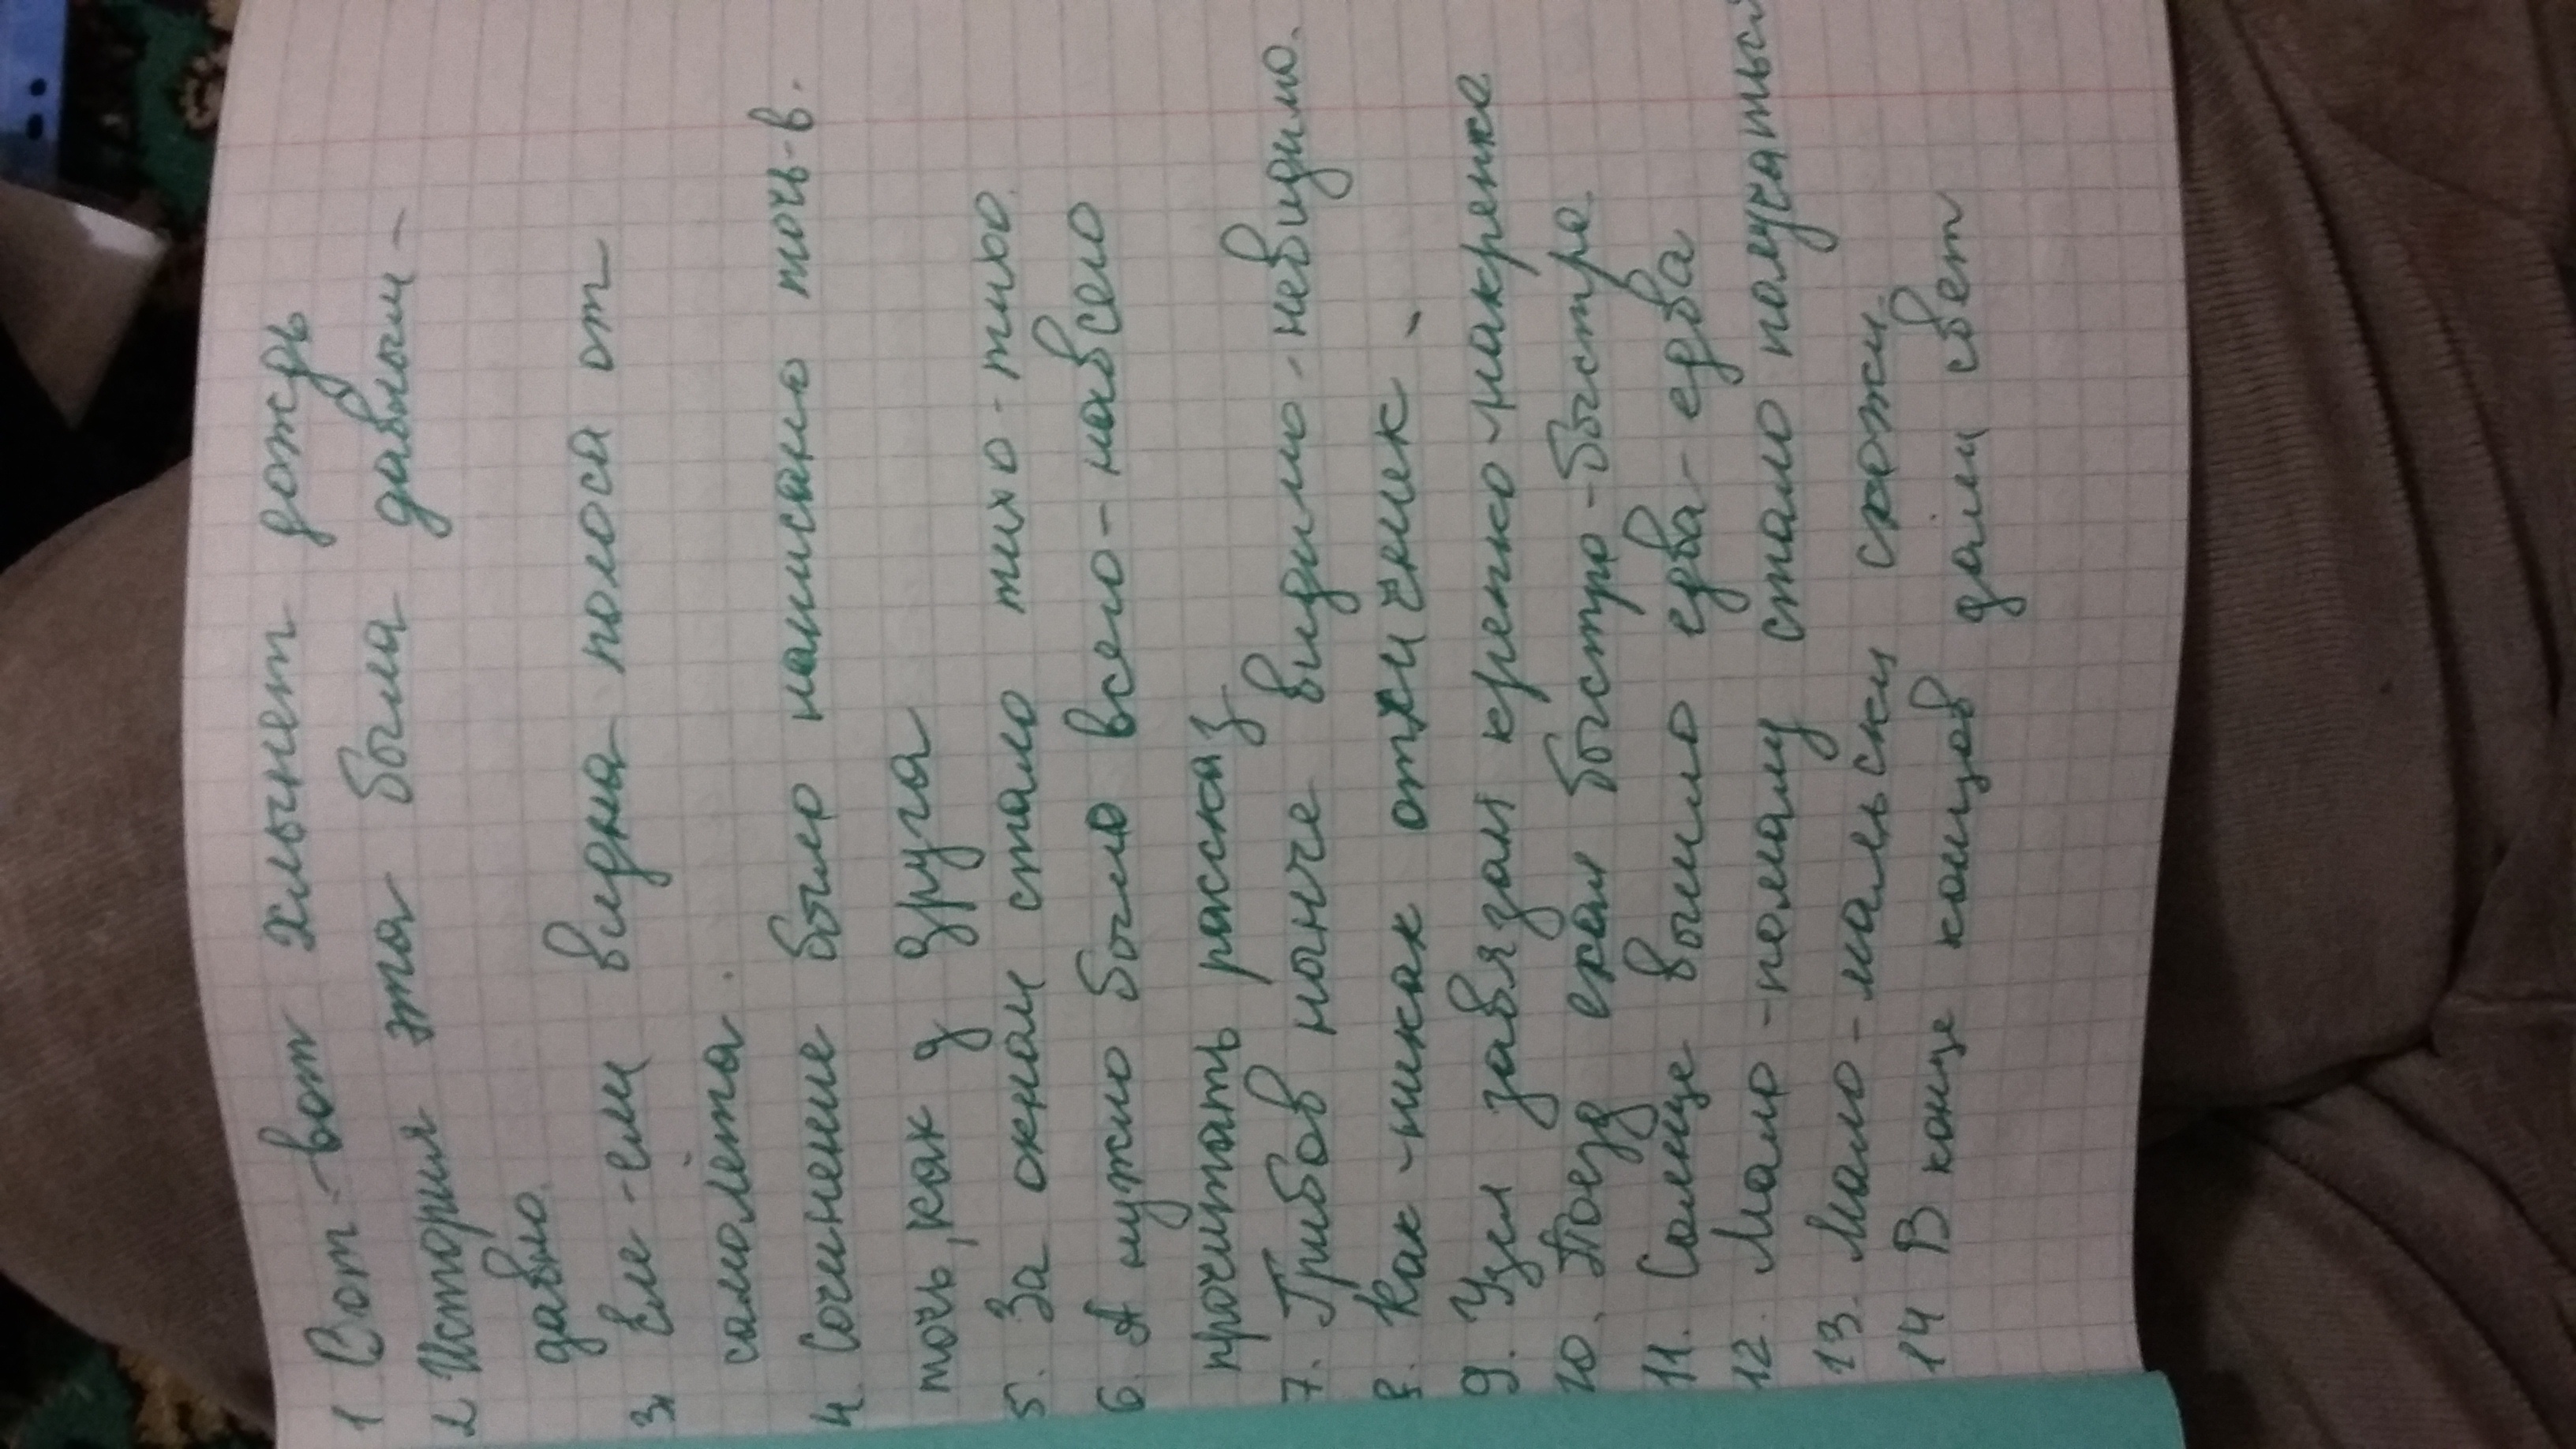 1 Вот-вот хлынет дождь
2 История эта была давным-
давно.
3. Еле-ели видна полоса от
самолёта.
4. Сочинение было написано точь-в.
точь, как у друга
5. За окнам стало тихо-тихо.
6. А нужно было всего-навсего
прочитать рассказ
7. Грибов нонче видимо-невидимо.
8. Как-никак отличник.
9. Узел завязали крепко-накрепко
10. Поезд ехал быстро-быстро
11. Солнце вошло едва-едва
12. Мало-помалу стало получаться
13. Мало-мальски схожи
14 В конце концов дали свет